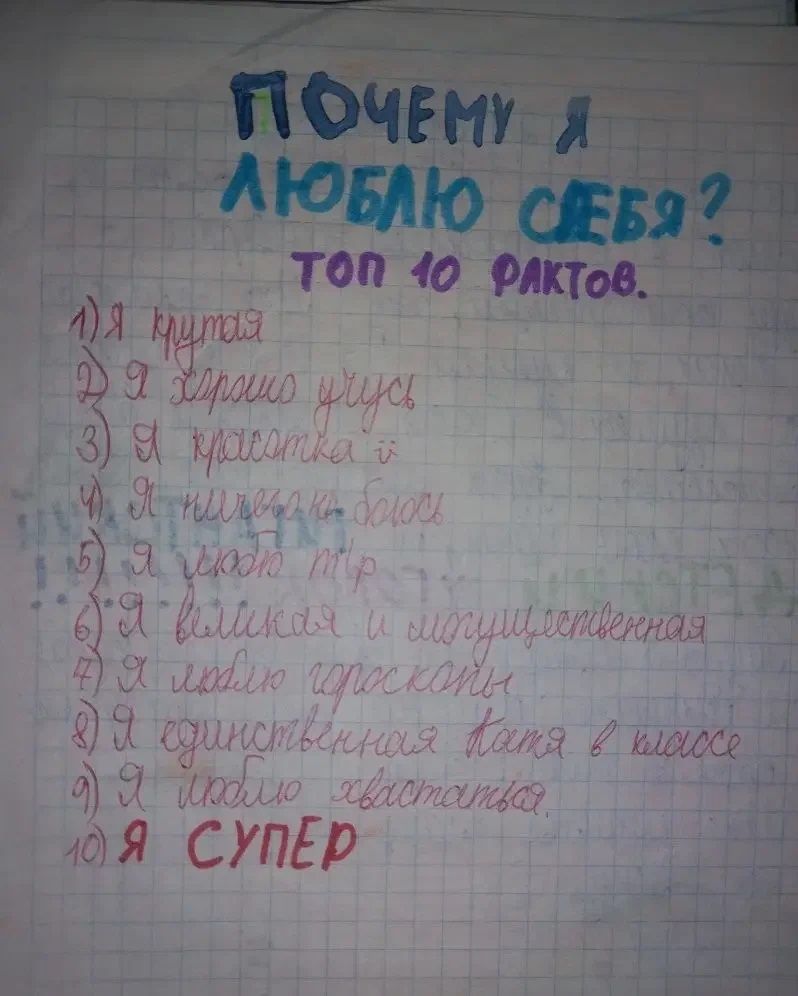 ПОЧЕМУ Я
ЛЮБЛЮ СЕБЯ?
ТОП 10 ФАКТОВ.
1) Я крутая
2) Я хорошо учусь
3) Я красотка ü
4) Я ничего не боюсь
5) Я люблю
6) Я великая и могущественная
7) Я люблю гороскопы
8) Я единственная Катя в классе
9) Я люблю хвастаться.
10) Я СУПЕР